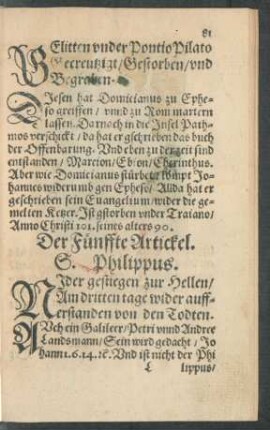 81
GElitten vnder Pontio Pilato
Gecreutzigt/ Gestorben/ vnd
Begraben.
DIesen hat Domicianus zu Ephe-
so greiffen/ vnnd zu Rom martern
lassen. Darnoch in die Insel Path-
mos verschickt/ da hat er geschrieben das buch
der Offenbarung. Vnd eben zu der zeit sind
entstanden/ Marcion/ Ebion/ Cherinthus.
Aber wie Domicianus stürbe/ kömpt Jo-
hannes widerumb gen Epheso/ Allda hat er
geschrieben sein Euangelium/ wider die ge-
melten Ketzer. Ist gstorben vnder Traiano/
Anno Christi 101. seines alters 90.
Der Fünffte Artickel.
S. Philippus.
NIder gestiegen zur Hellen/
Am dritten tage wider auff-
erstanden von den Todten.
AVch ein Galileer/ Petri vnnd Andree
Landsmann/ Sein wird gedacht/ Jo
hann 1. 6. 14. 18. Vnd ist nicht der Phi
L lippus/